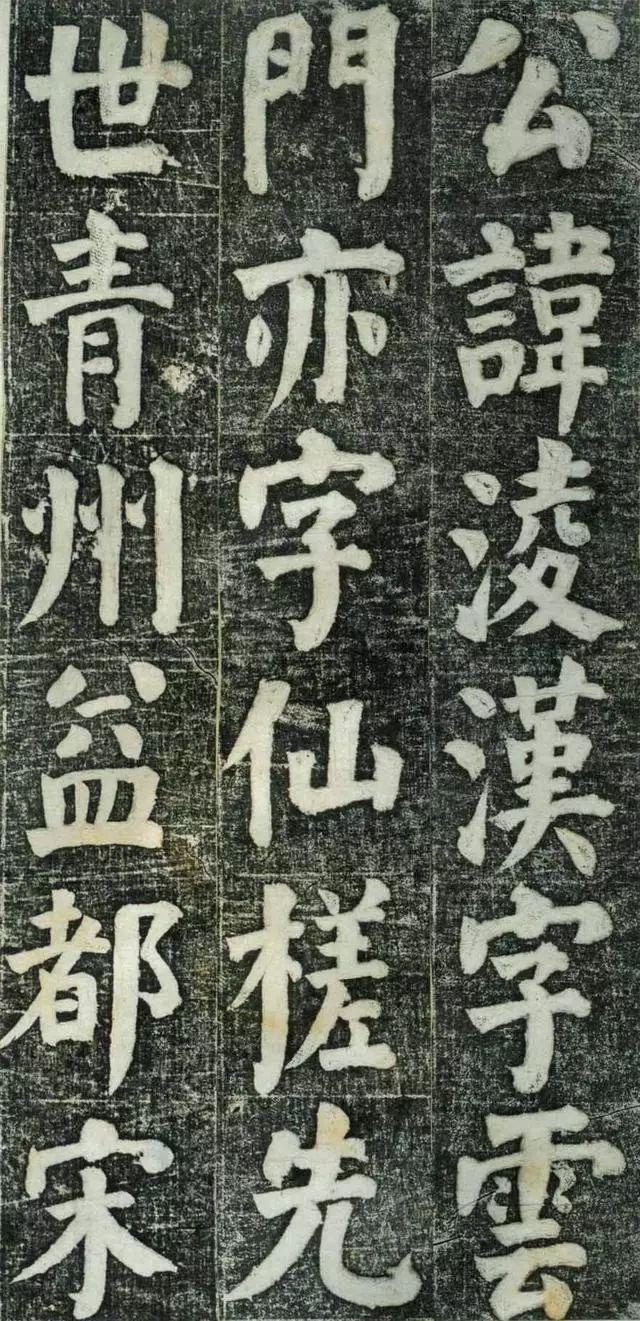 公諱淩漢字雲
門亦字仙槎先
世青州益都宋